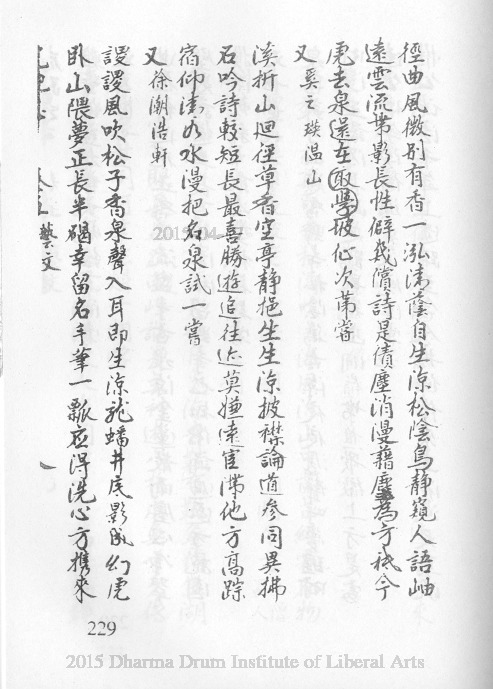 徑曲風微別有香一泓清蔭自生涼松陰鳥靜窺人語岫
遠雲流帶影長性僻幾償詩是債塵消漫藉麈為方祗今
虎去泉還在取學坡仙次第嘗
又 奚之瑛温山
溪折山迴徑草香空亭靜挹生生涼披襟論道參同異拂
石吟詩較短長最喜勝遊追往迹莫嫌遠宦滯他方高踪
宿仰清如水漫把名泉試一嘗
又 徐潮浩軒
謖謖風吹松子香泉聲入耳即生涼龍蟠井底影成幻虎
卧山隈夢正長半碣幸留名手筆一瓢應得洗心方攜來
藝文
229
2015 Dharma Drum Institute of Liberal Arts